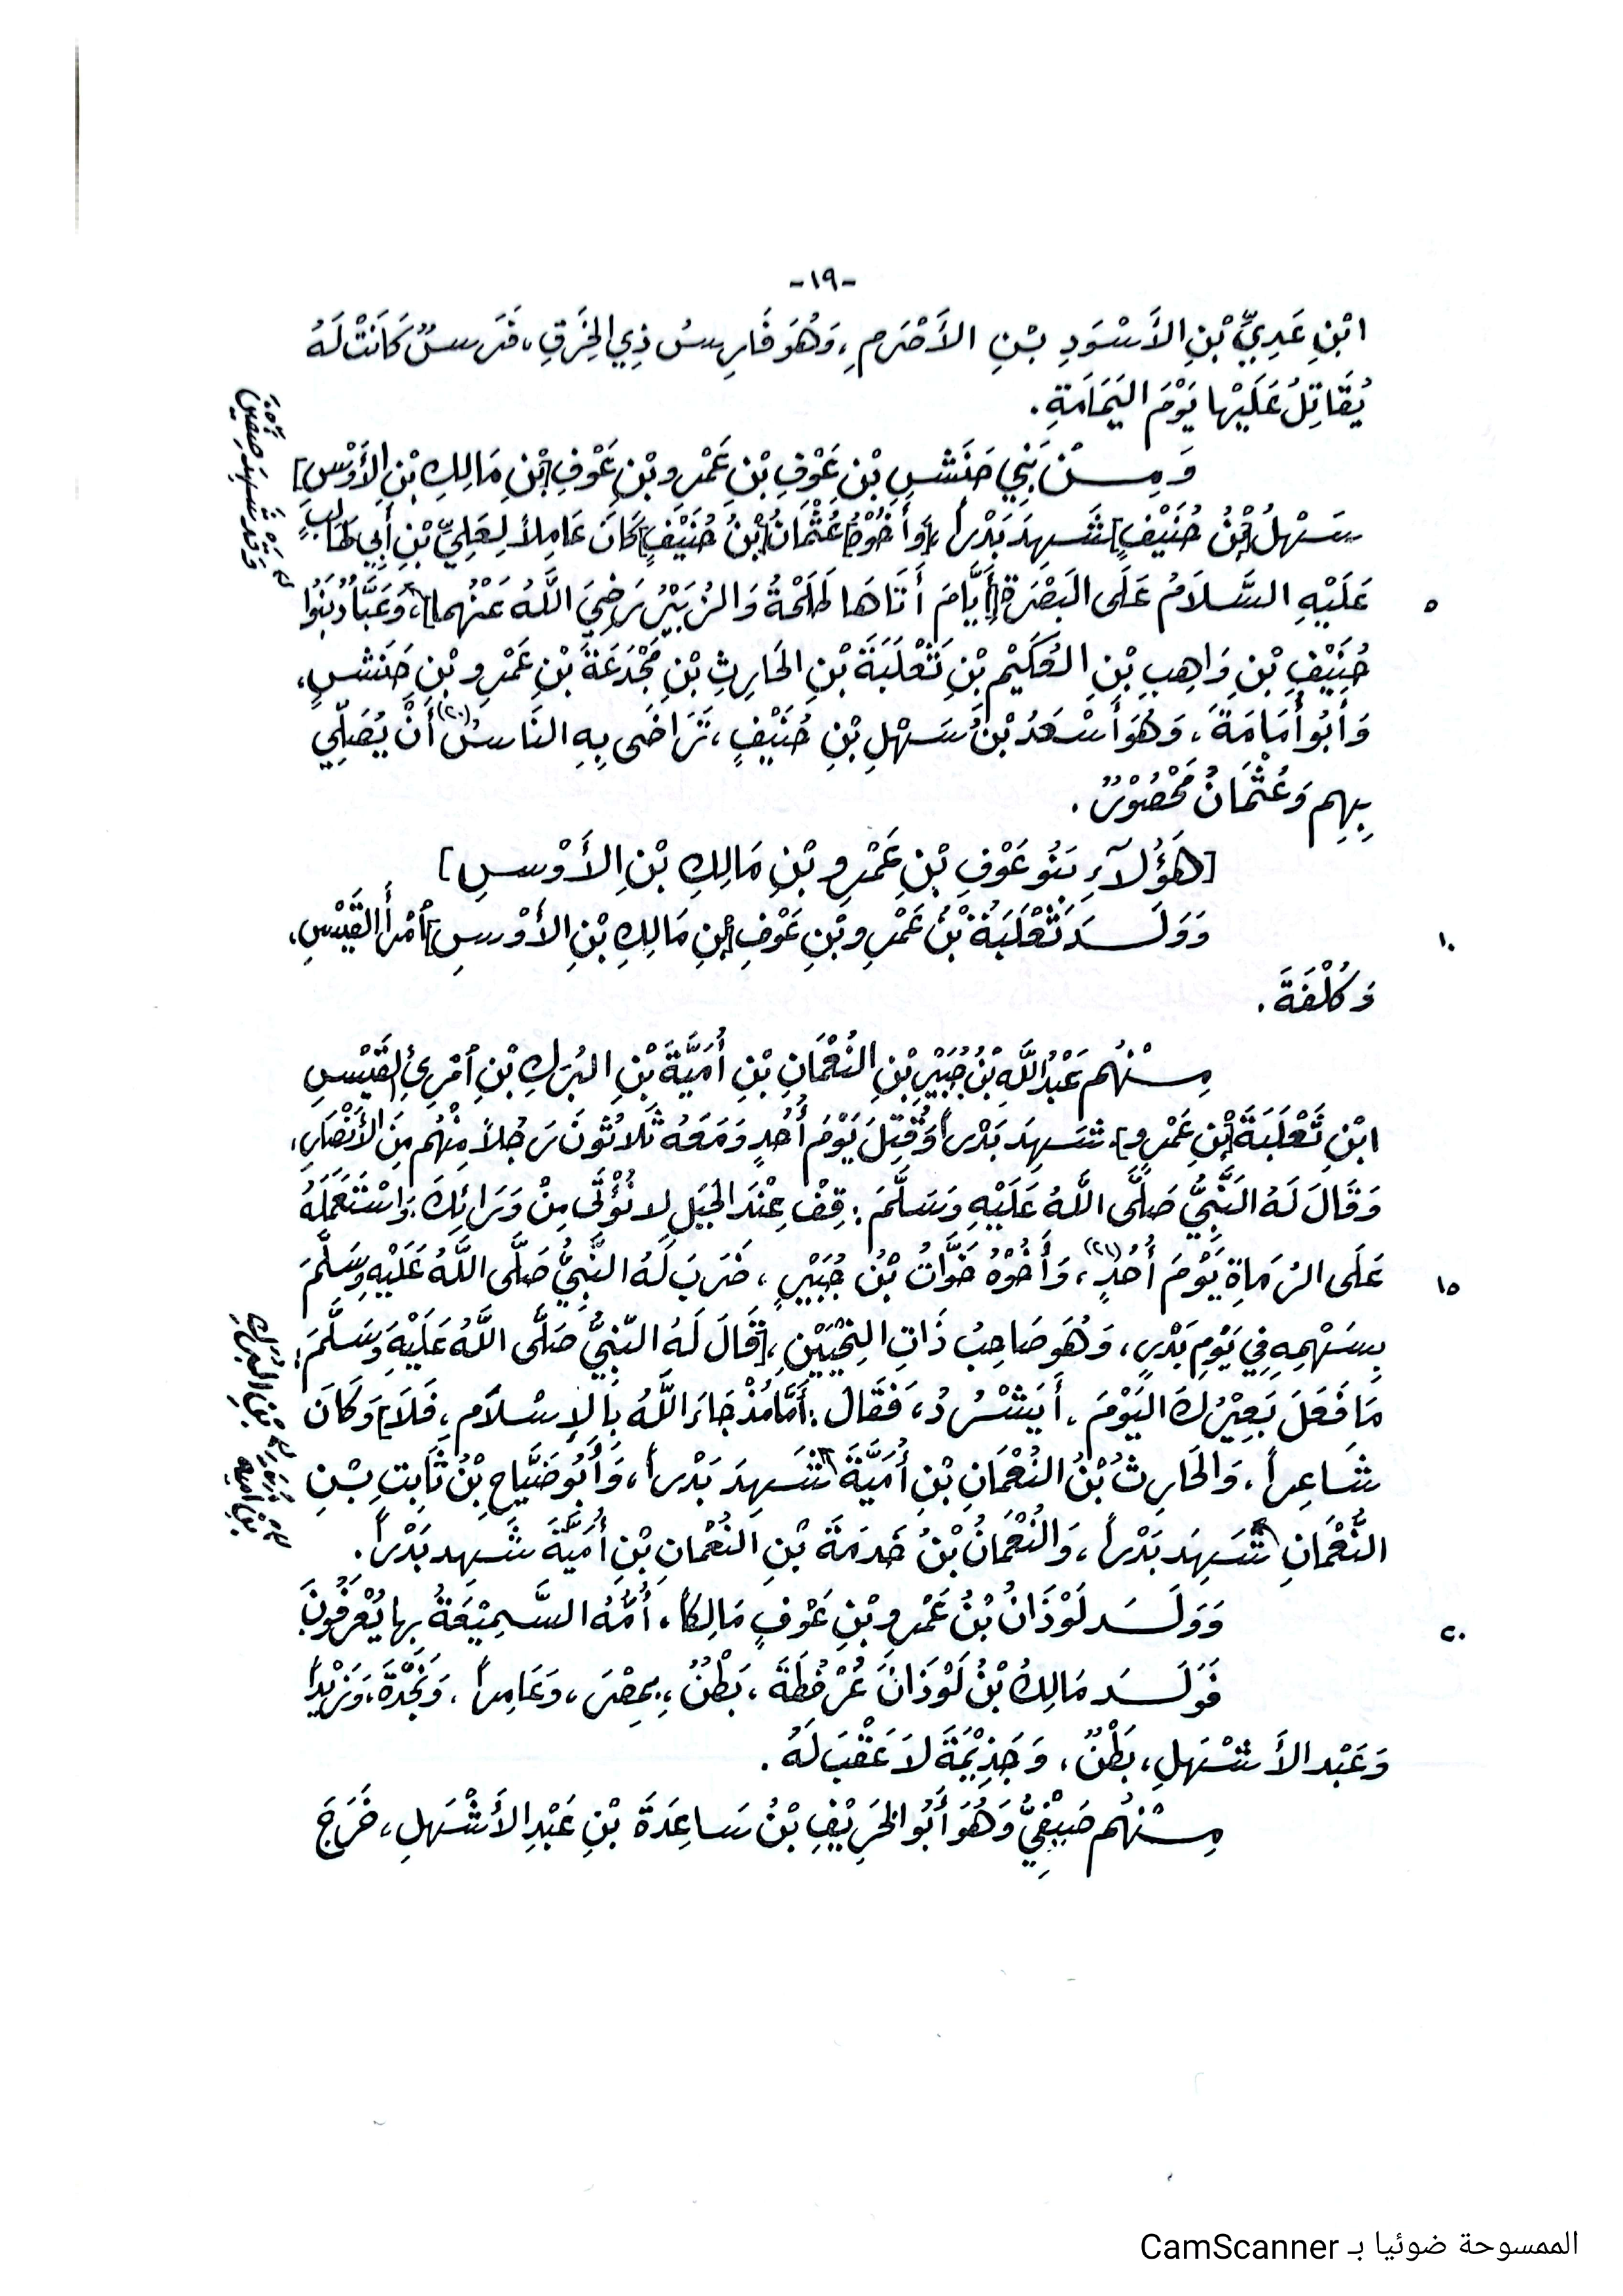 -١٩-
ابْنِ عَدِيِّ بْنِ الأَسْوَدِ بْنِ الأَصْرَمِ، وَهُوَ فَارِسُ ذِي الخِرَقِ، فَرَسٌ كَانَتْ لَهُ
يُقَاتِلُ عَلَيْها يَوْمَ اليَمَامَةِ.
وَمِنْ بَنِي حَنَشِ بْنِ عَوْفِ بْنِ عَمْرِو بْنِ عَوْفِ [بْنِ مَالِكِ بْنِ الأَوْسِ]
سَهْلُ [بْنُ حُنَيْفٍ] شَهِدَ بَدْراً، [وَأَخُوْهُ] عُثْمَانُ [بْنُ حُنَيْفٍ] كَانَ عَامِلاً لِعَلِيِّ بْنِ أَبِي طَالِبٍ
عَلَيْهِ السَّلَامُ عَلَى البَصْرَةِ [أَيَّامَ أَتَاهَا طَلْحَةُ وَالزُبَيْرُ رَضِيَ اللَّهُ عَنْهُما]، وَعَبَّادُ بَنُوا
٥
حُنَيْفِ بْنِ وَاهِبِ بْنِ العُكَيْمِ بْنِ ثَعْلَبَةَ بْنِ الحَارِثِ بْنِ مَجْدَعَةَ بْنِ عَمْرِو بْنِ حَنَشٍ،
وَأَبُو أُمَامَةَ، وَهُوَ أَسْعَدُ بْنُ سَهْلِ بْنِ حُنَيْفٍ، تَرَاضَى بِهِ النَاسُ (٢٠) أَنْ يُصَلِّي
بِهِم وَعُثْمَانُ مَحْصُوْرٌ.
[هَؤُلَآءِ بَنُو عَوْفِ بْنِ عَمْرِو بْنِ مَالِكِ بْنِ الأَوْسِ]
وَوَلَدَ ثَعْلَبَةُ بْنُ عَمْرِو بْنِ عَوْفِ [بْنِ مَالِكِ بْنِ الأَوْسِ] ٱمْرَأَ القَيْسِ،
١٠
وَكُلْفَةَ.
مِنْهُم عَبْدُ اللَّهِ بْنُ جُبَيْرِ بْنِ النُعْمَانِ بْنِ أُمَيَّةَ بْنِ البُرَكِ بْنِ ٱمْرِئِ القَيْسِ
ابْنِ ثَعْلَبَةَ [بْنِ عَمْرٍو]، شَهِدَ بَدْراً وَقُتِلَ يَوْمَ أُحُدٍ وَمَعَهُ ثَلَاثُونَ رَجُلاً مِنْهُم مِنَ الأَنْصَارِ،
وَقَالَ لَهُ النَّبِيُّ صَلَّى اللَّهُ عَلَيْهِ وَسَلَّمَ: قِفْ عِنْدَ الجَبَلِ لا نُؤْتَى مِنْ وَرَائِكَ، وَاسْتَعْمَلَهُ
عَلَى الرُمَاةِ يَوْمَ أُحُدٍ (٢١)، وَأَخُوْهُ خَوَّاتُ بْنُ جُبَيْرٍ، ضَرَبَ لَهُ النَّبِيُّ صَلَّى اللَّهُ عَلَيْهِ وَسَلَّمَ
١٥
بِسَهْمِهِ فِي يَوْمِ بَدْرٍ، وَهُوَ صَاحِبُ ذَاتِ النِحْيَيْنِ، [قَالَ لَهُ النَّبِيُّ صَلَّى اللَّهُ عَلَيْهِ وَسَلَّمَ:
مَا فَعَلَ بَعِيْرُكَ اليَوْمَ. أَيَشْرُدُ، فَقَالَ: أَمَّا مُنْذُ جَاءَ اللَّهُ بِالإِسْلَامِ، فَلَا] وَكَانَ
شَاعِراً، وَالحَارِثُ بْنُ النُعْمَانِ بْنِ أُمَيَّةَ شَهِدَ بَدْراً، وَأَبُو ضَيَّاحِ بْنُ ثَابِتِ بْنِ
النُّعْمَانِ شَهِدَ بَدْراً، وَالنُعْمَانُ بْنُ خَدَمَةَ بْنِ النُعْمَانِ بْنِ أُمَيَّةَ شَهِدَ بَدْراً.
وَوَلَدَ لَوْذَانُ بْنُ عَمْرِو بْنِ عَوْفٍ مَالِكاً، أُمُّهُ السَّمِيْعَةُ بِها يُعْرَفُونَ
٢٠
فَوَلَدَ مَالِكُ بْنُ لَوْذَانَ عُرْفُطَةَ، بَطْنٌ، بِمِصْرَ، وَعَامِراً، وَنَجْدَةَ، وَزَيْداً
وَعَبْدَ الأَشْهَلِ، بَطْنٌ، وَجَذِيْمَةَ لاَ عَقْبَ لَهُ.
مِنْهُم صَيْفِيُّ وَهُوَ أَبُو الخَرِيْفِ بْنُ سَاعِدَةَ بْنِ عَبْدِ الأَشْهَلِ، خَرَجَ
الممسوحة ضوئيا بـ CamScanner